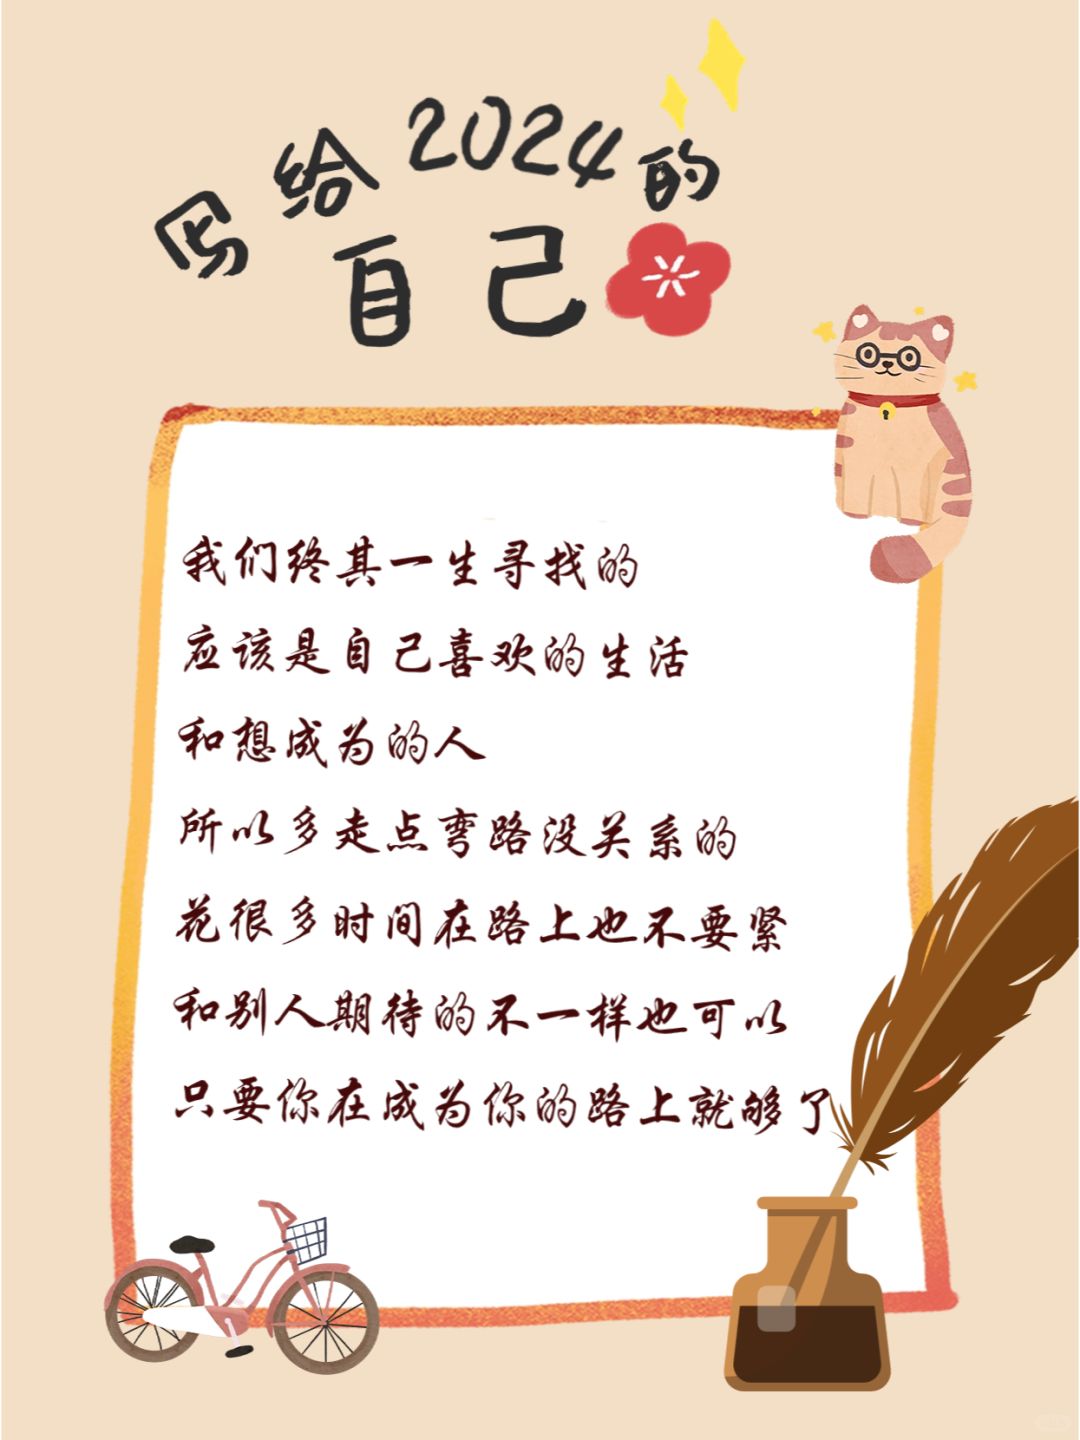 写给2024的
自己
我们终其一生寻找的
应该是自己喜欢的生活
和想成为的人
所以多走点弯路没关系的
花很多时间在路上也不要紧
和别人期待的不一样也可以
只要你在成为你的路上就够了